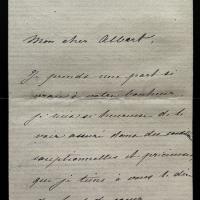 Mon cher Albert,
Je prends une part si
vraie à votre bonheur
je suis si heureuse de le
voir assuré dans des
exceptionnelles et
que je tiens à vous le dire